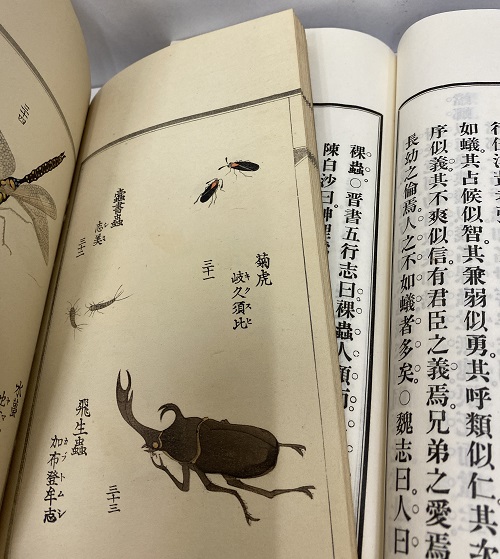 如蟻其占候似智其兼弱似勇其呼類似仁其
序似義其不爽似信有君臣之義焉兄弟之愛焉
長幼之倫焉人之不如蟻者多矣○魏志曰人曰
裸蟲○晉書五行志曰裸蟲人類而
陳白沙曰
菊虎
岐久須比
キクスヒ
三十一
蠹書蟲
志美
シミ
三十二
飛生蟲
加布登牟志
カブトムシ
三十三